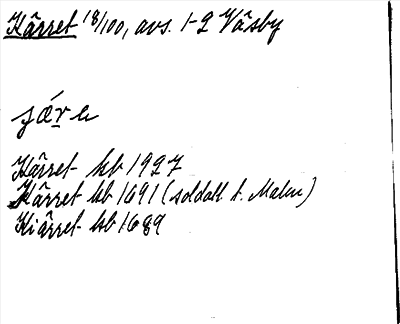 Kärret 18/100, avs. 1-2 Väsby
Kärret kb 1927
Kärret kb 1691 (soldatt.
Kiärret kb 1689